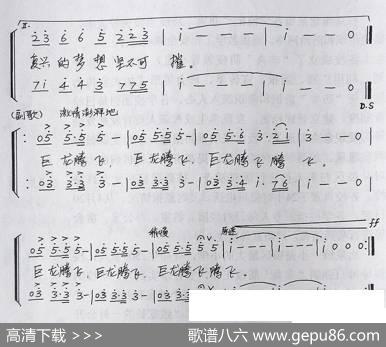 II.
2 3 6 6 5 2 2 3 | i - - - | i - - - | i - - 0 |
复兴的梦想坚不可 摧。
7 i 4 4 3 7 7 5 | i - - - | i - - - | i - - 0 |
D.S
(副歌) 激情澎湃地
: 05 5·5 5 - | 05 5·5 5 - | 05 5·6 3· 2 i | 3 - - 0
巨龙腾飞, 巨龙腾飞, 巨龙腾飞腾 飞.
: 03 3·3 3 - | 03 3·3 3 - | 03 3·4 i· 7 6 | i - - 0
渐慢 原速 ff
05 5·5 5 - | 05 5·5 5 - | 05 5·5 5 5 | i - - - | i - - - | i 0 0 0 :
巨龙腾飞, 巨龙腾飞, 巨龙腾飞腾飞.
03 3·3 3 - | 03 3·3 3 - | 03
高清下载 >>>
歌谱八六 www.gepu86.com